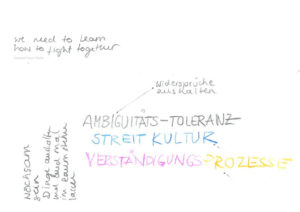 we need to learn
how to fight together
Widersprüche
aushalten
AMBIGUITÄTS-TOLERANZ
STREIT KULTUR
VERSTÄNDIGUNGS-PROZESSE
Wachsam
sein
Dinge aushalten
und auch mal
im Raum stehen
lassen